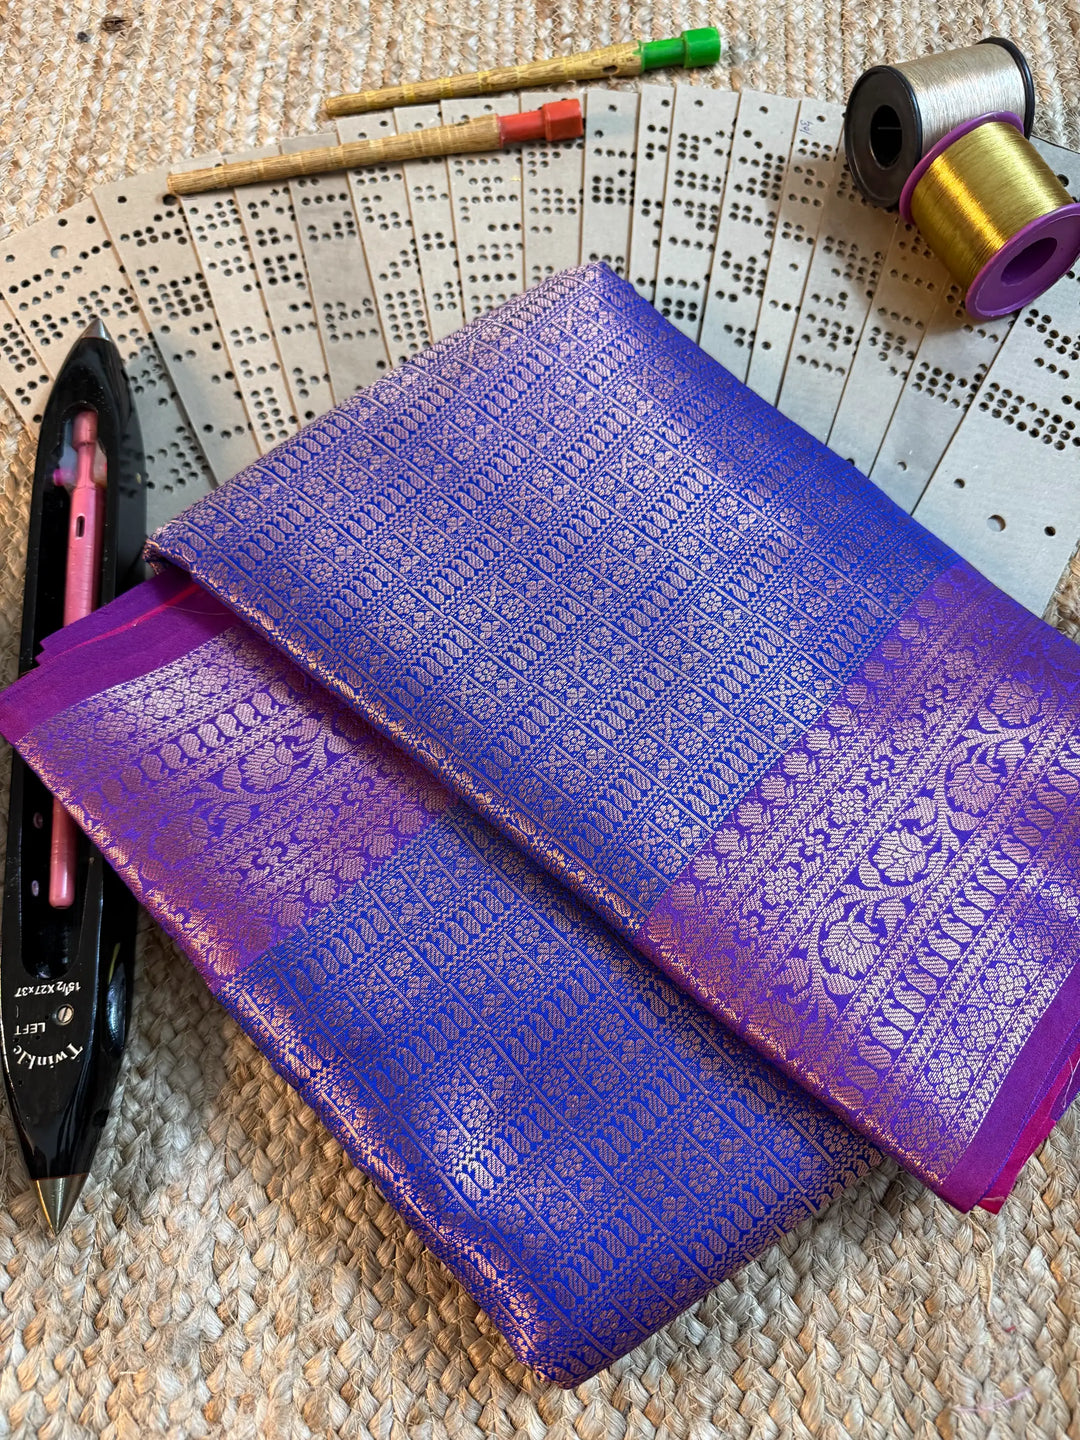 Twinkle
LEFT
15½X27x37